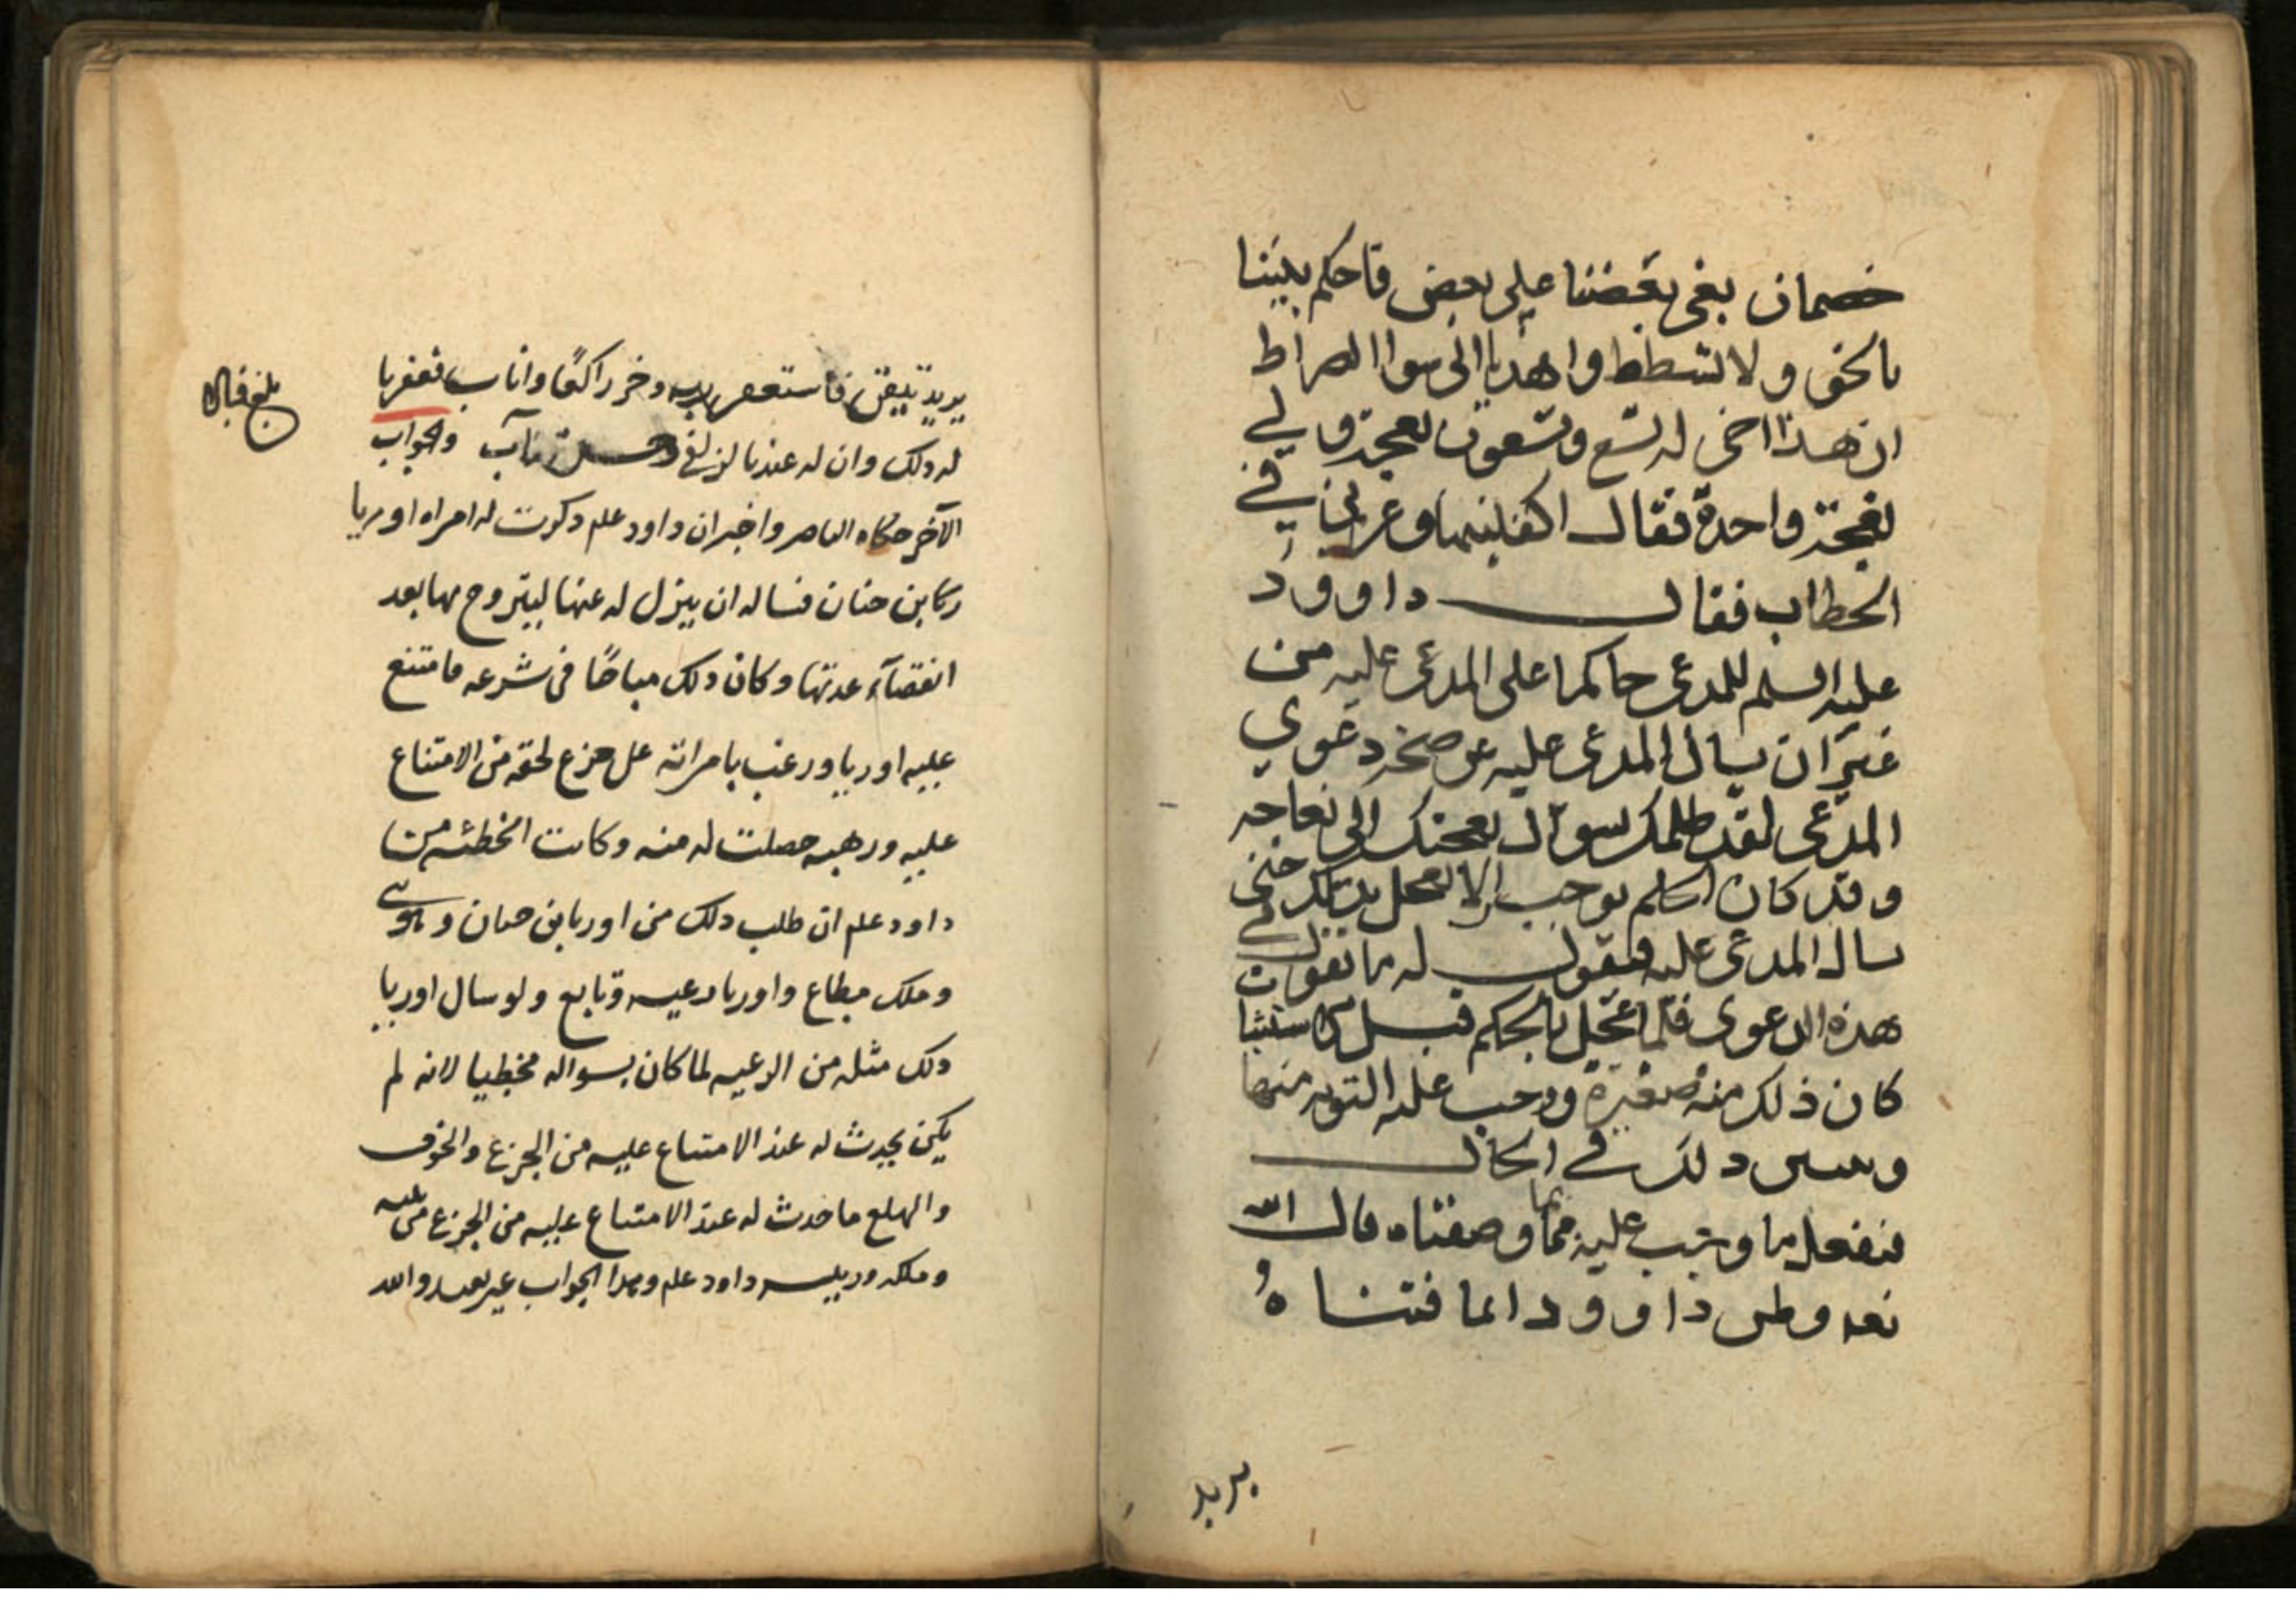 خصمان بغى بعضنا على بعض فاحكم بيننا
بالحق ولا تشطط واهدنا الى سوا الصراط
ان هذا اخى له تسع وتسعون نعجة ولي
نعجة واحدة فقال اكفلنيها وعزني في
الخطاب فقال داوود
عليه السلم للمدعى حاكما على المدعى عليه من
غير ان يسال المدعى عليه عن صحة دعوي
المدعى لقد ظلمك بسوال نعجتك الى نعاجه
وقد كان الحكم يوجب الا يعجل بذلك حتى
يسال المدعى عليه فيقول له ما تقول في
هذه الدعوى فلما عجل بالحكم قبل
كان ذلك منه صغيرة ووجب عليه التوبه منها
ذلك في الحال
ففعل ما وجب عليه مما وصفناه قال الله
تعه وظن داوود انما فتناه
يريد
يريد تيقن فاستغفر ربه وخر راكعًا واناب فغفرنا
له ذلك وان له عندنا لزلفى وحسن مآب والجواب
الآخر حكاه الناصر واخبر ان داود علم ذكرت له امراه اوريا
بن حنان فساله ان ينزل له عنها ليتزوج بها بعد
انقضآء عدتها وكان ذلك مباحًا في شرعه فامتنع
عليه اوريا ورغب بامراته على جزع لحقه من الامتناع
عليه ورهبه حصلت له منه وكانت الخطئه من
داود علم ان طلب ذلك من اوريا بن حنان و
وملك مطاع واوريا رعيه وتابع ولو سال اوريا
ذلك مثله من الرعيه لما كان بسواله مخطيا لانه لم
يكن يحدث له عند الامتناع عليه من الجزع والخوف
والهلع ما حدث له عند الامتناع عليه من الجزع من
وملكه ورييسه داود علم وهذا الجواب غير بعيد والله
بلغ قبالا